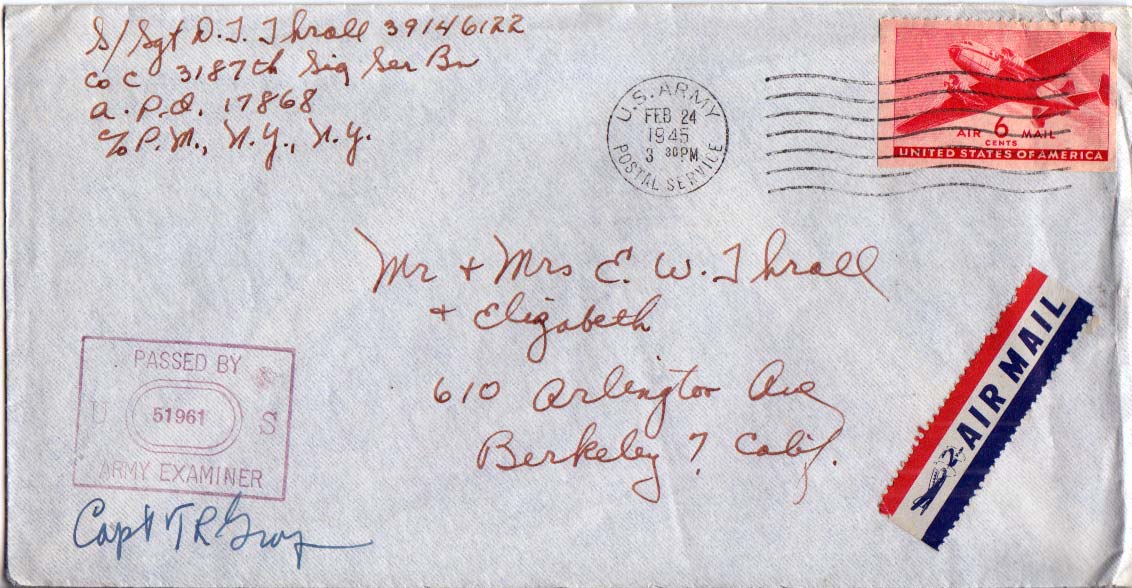 S/Sgt D. T. Thrall 39146122
Co C 3187th Sig Ser Bn
A.P.O. 17868
c/o P.M., N.Y., N.Y.
U.S. ARMY
FEB 24
1945
3 30 PM
POSTAL SERVICE
AIR 6 MAIL
CENTS
UNITED STATES OF AMERICA
Mr + Mrs E. W. Thrall
+ Elizabeth
610 Arlington Ave
Berkeley 7, Calif.
AIR MAIL
PASSED BY
U 51961 S
ARMY EXAMINER
Capt T R